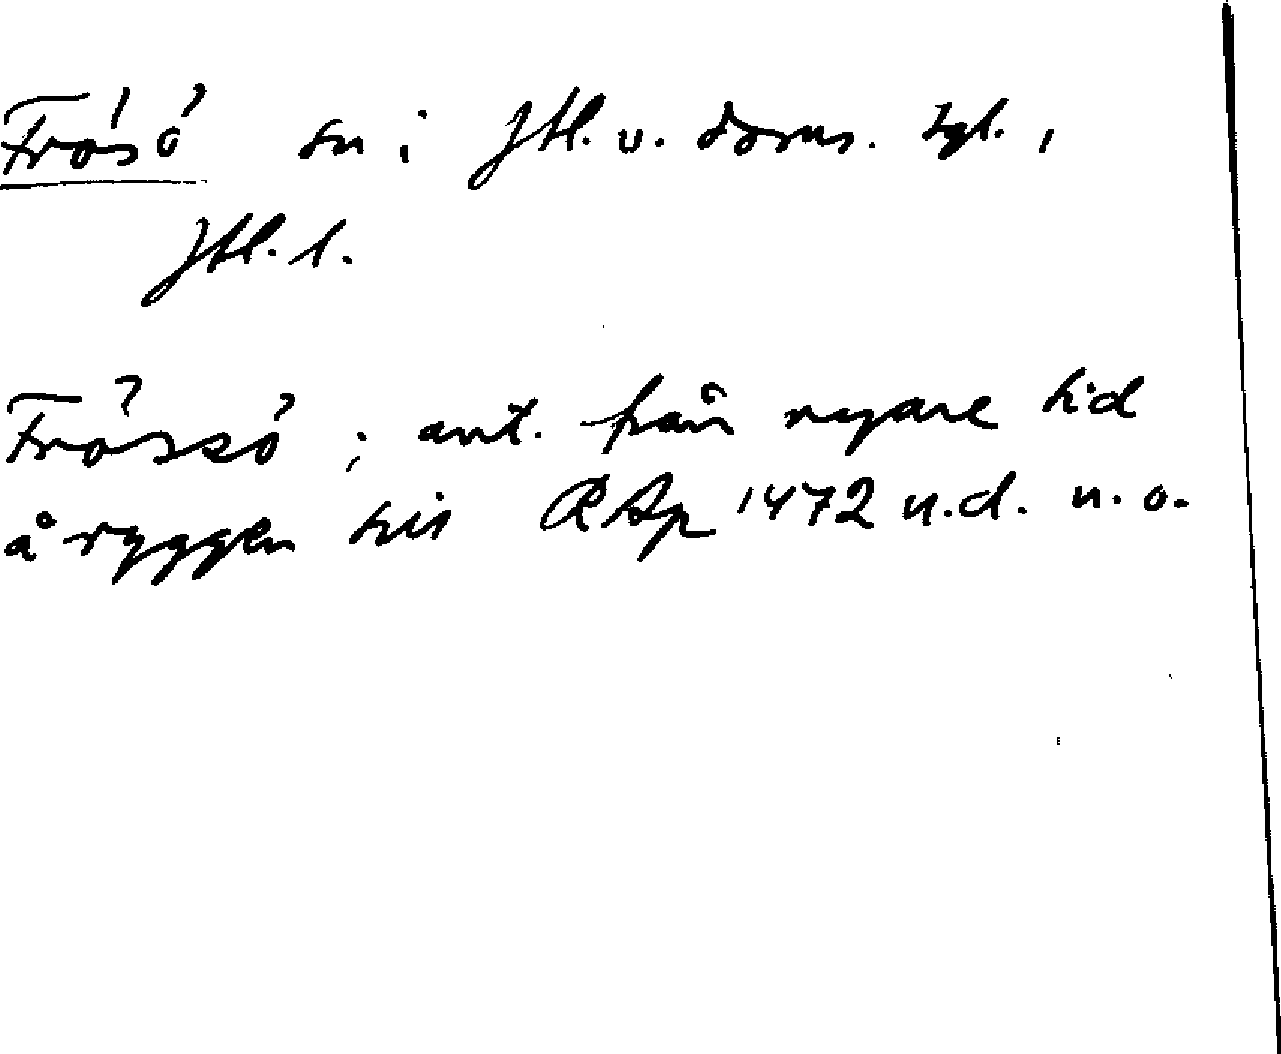 Frösö sn i Jtl. v. doms. tgl.,
Jtl. l.
Frössö; ant. från nyare tid
å ryggen till RAp 1472 u.d. n. o.